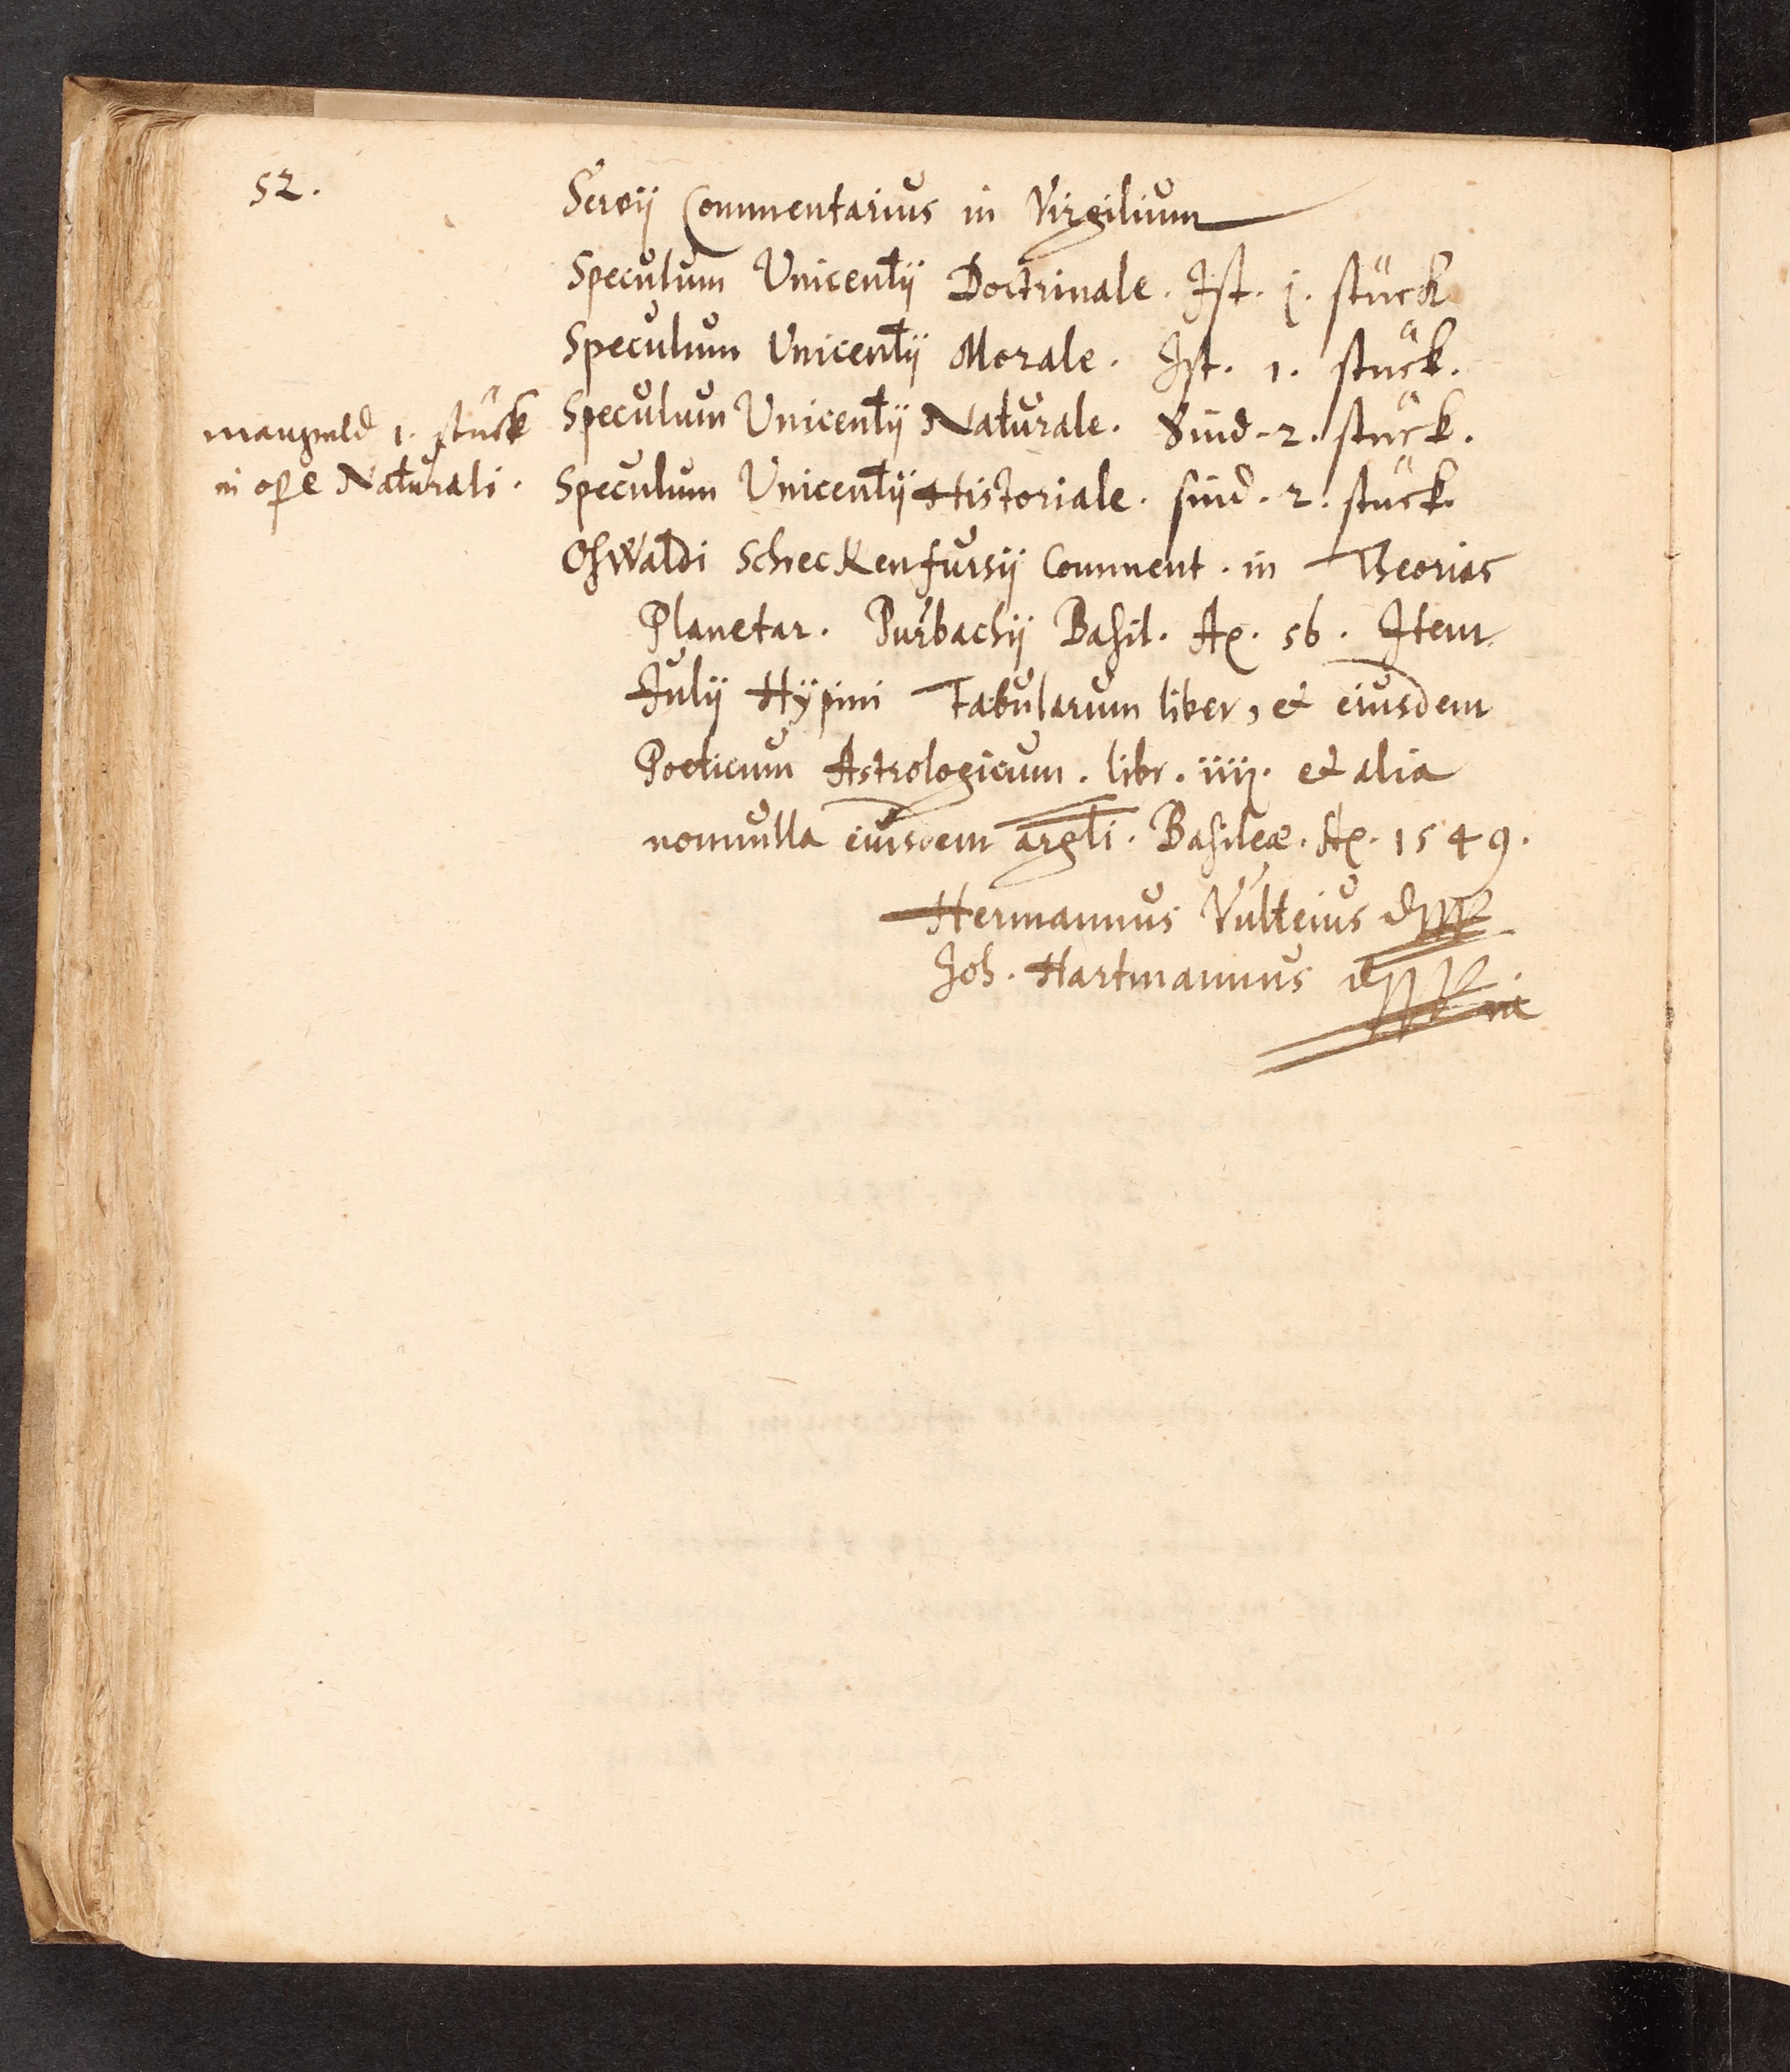 52.
Servij Commentarius in Virgilium
Speculum Vnicentij Doctrinale. Ist. j. stück
Speculum Vnicentij Morale. Ist. 1. stück.
Speculum Vnicentij Naturale. Sind. 2. stück.
mangeld 1. stück
in ope Naturali.
Speculum Vnicentij Historiale. sind. 2. stück.
Oswaldi Schreckenfursij Comment. in Theorias
Planetar. Purbachij Basil. Ao. 56. Item
Julij Hygini Tabularum liber, et eiusdem
Poeticum Astrologicum. libr. iiij. et alia
nonnulla eiusdem argti. Basileæ. Ao. 1549.
Hermannus Vulteius
Joh. Hartmannus